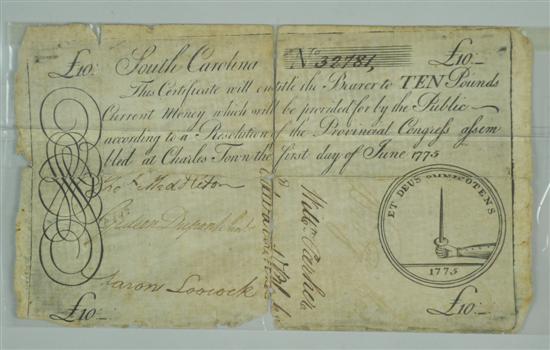 £10:
South Carolina
No 32781,
£10:
This Certificate will entitle the Bearer to TEN Pounds
Current Money which will be provided for by the Public
according to a Resolution of the Provincial Congress assem
bled at Charles Town the first day of June 1775
Gideon Dupont
Aaron Loocock
ET DEUS OMNIPOTENS
1775
£10:
£10: